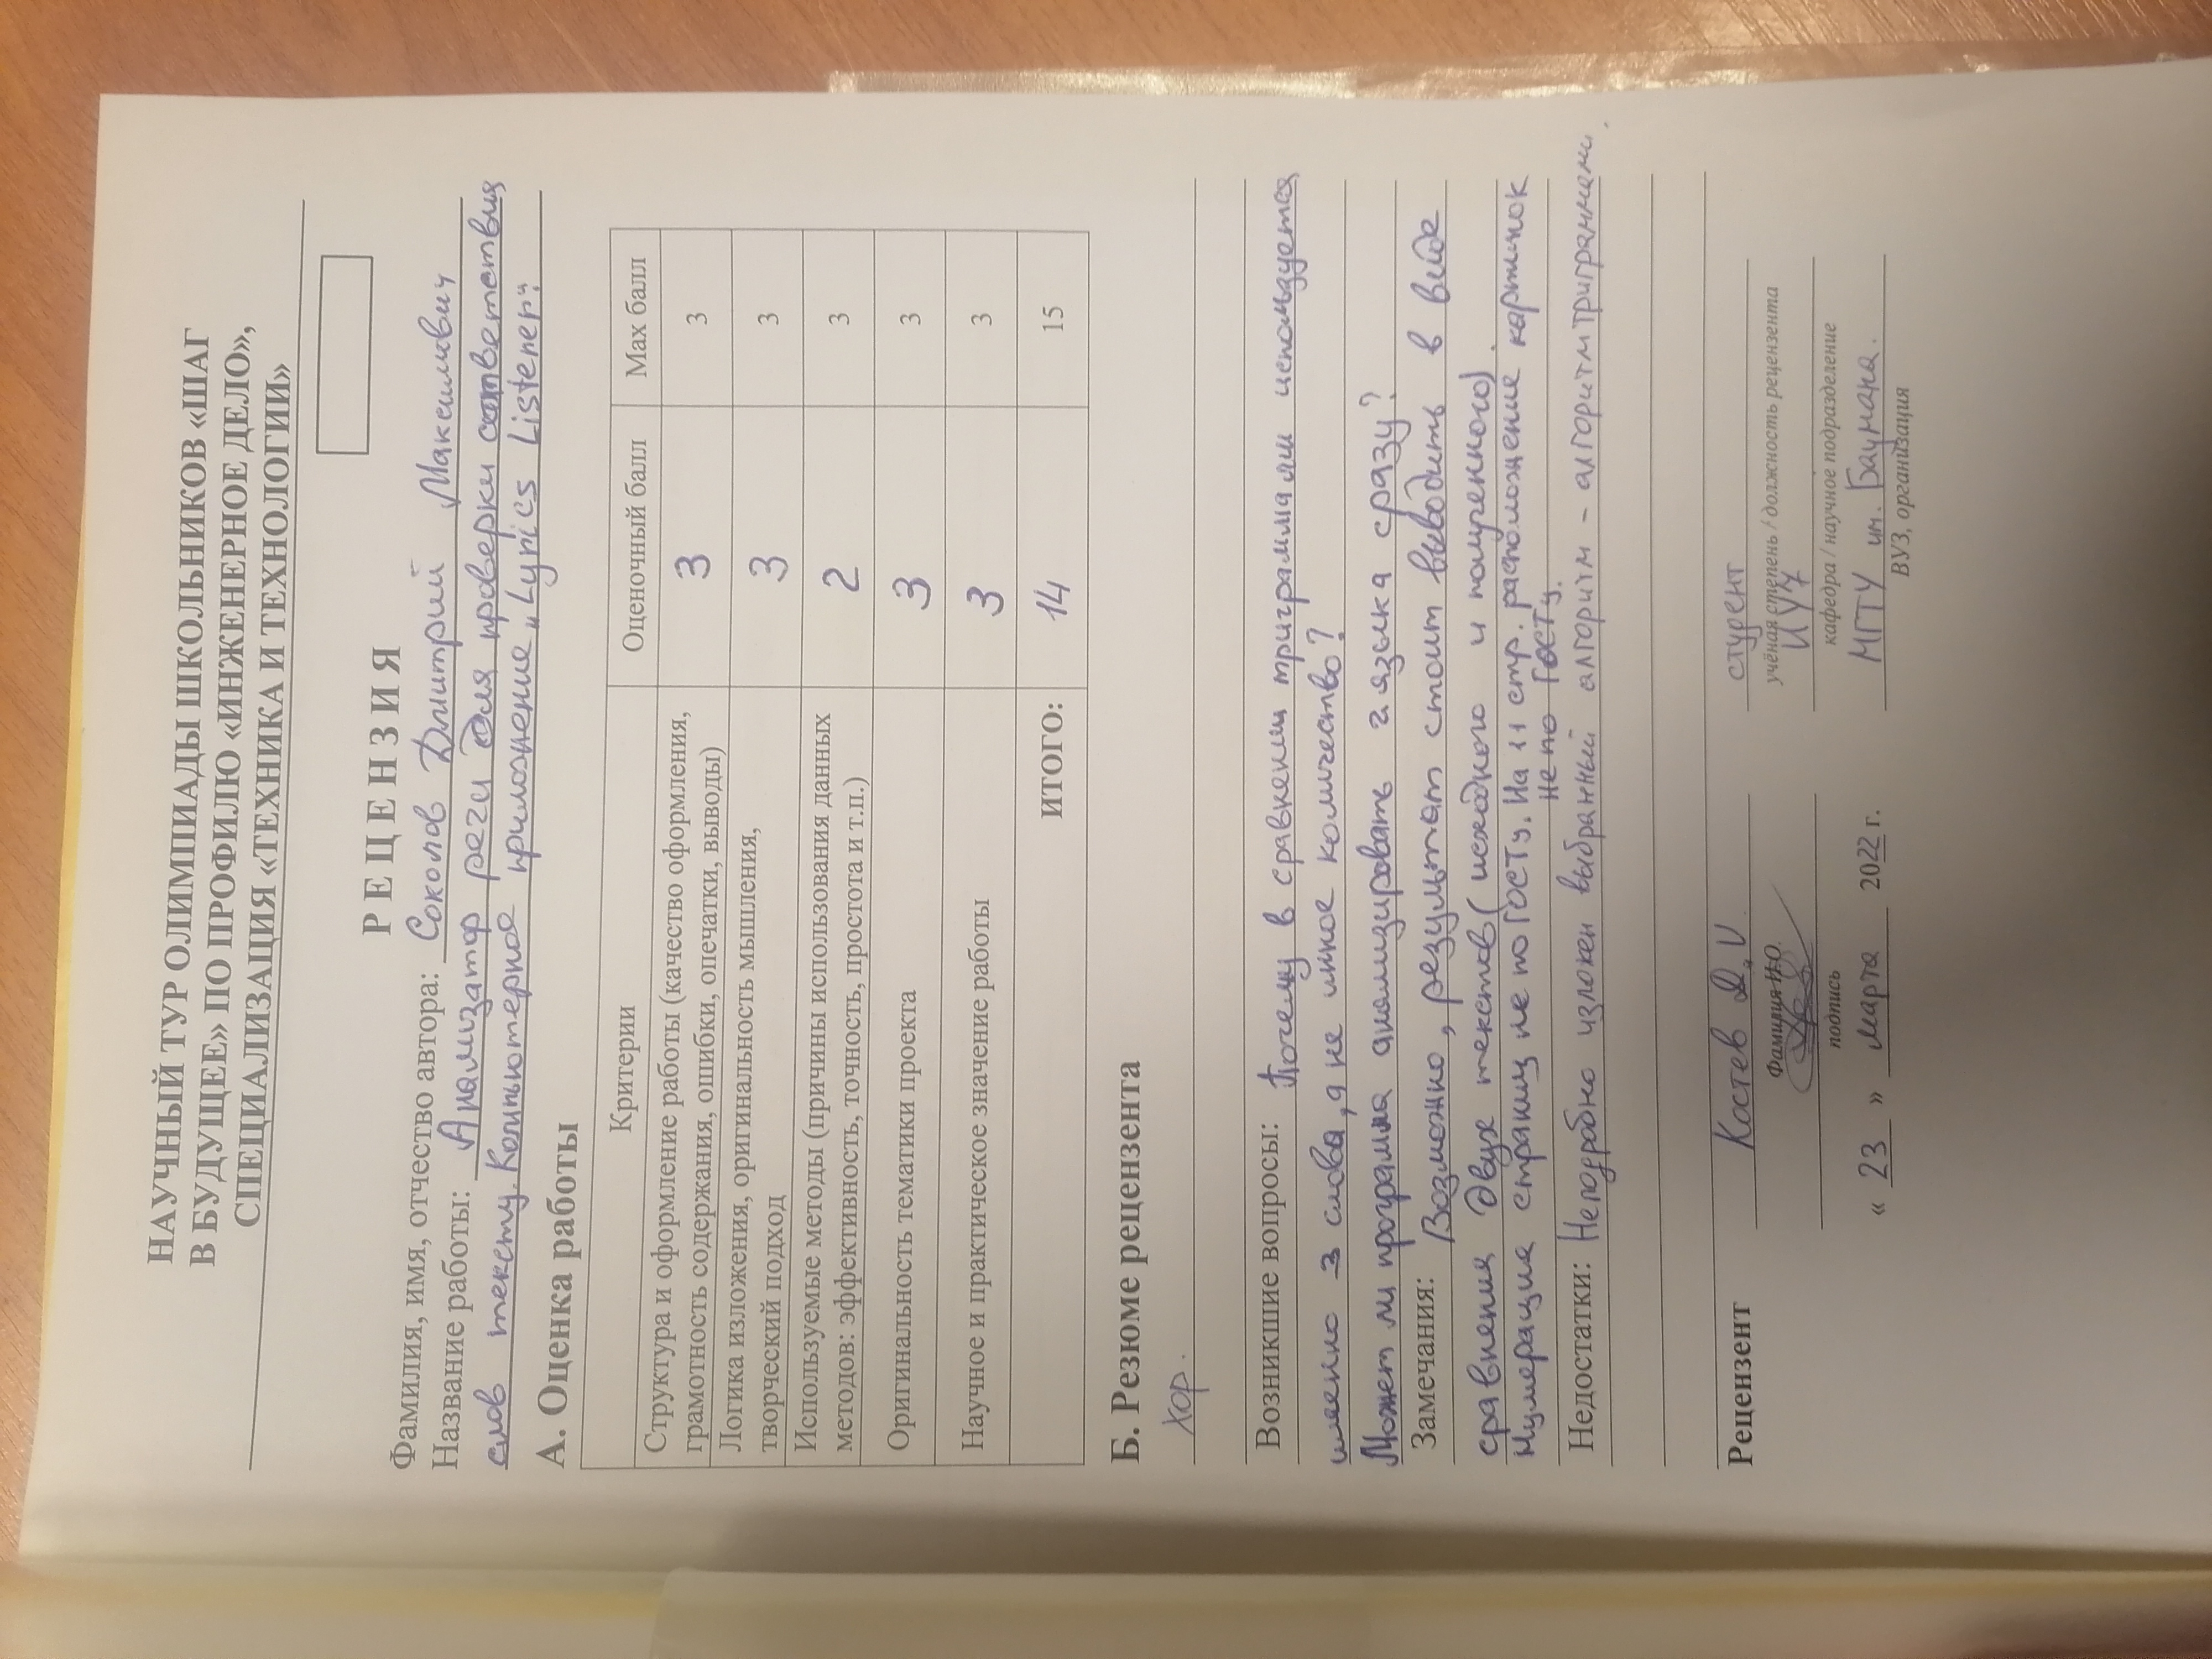 НАУЧНЫЙ ТУР ОЛИМПИАДЫ ШКОЛЬНИКОВ «ШАГ
В БУДУЩЕЕ» ПО ПРОФИЛЮ «ИНЖЕНЕРНОЕ ДЕЛО»,
СПЕЦИАЛИЗАЦИЯ «ТЕХНИКА И ТЕХНОЛОГИИ»
РЕЦЕНЗИЯ
Фамилия, имя, отчество автора: Соколов Дмитрий Максимович
Название работы: Анализатор речи для проверки соответствия
слов тексту. Компьютерное приложение „Lyrics Listener"
А. Оценка работы
Критерии Оценочный балл Мах балл
Структура и оформление работы (качество оформления,
грамотность содержания, ошибки, опечатки, выводы) 3 3
Логика изложения, оригинальность мышления,
творческий подход 3 3
Используемые методы (причины использования данных
методов: эффективность, точность, простота и т.п.) 2 3
Оригинальность тематики проекта 3 3
Научное и практическое значение работы 3 3
ИТОГО: 14 15
Б. Резюме рецензента
Хор.
Возникшие вопросы: Почему в сравнении триграммами используется
именно 3 слова, а не инное количество?
Может ли программа анализировать 2 языка сразу?
Замечания: Возможно, результат стоит выводить в виде
сравнения двух текстов (исходного и полученного).
Нумерация страниц не по ГОСТу. На 11 стр. расположение картинок
не по ГОСТу.
Недостатки: Неподробно изложен выбранный алгоритм – алгоритм триграммами.
Рецензент Костев Д. студент
Фамилия И.О. учёная степень / должность рецензента
ИУ7
подпись кафедра / научное подразделение
« 23 » марта 2022 г. МГТУ им. Баумана.
ВУЗ, организация